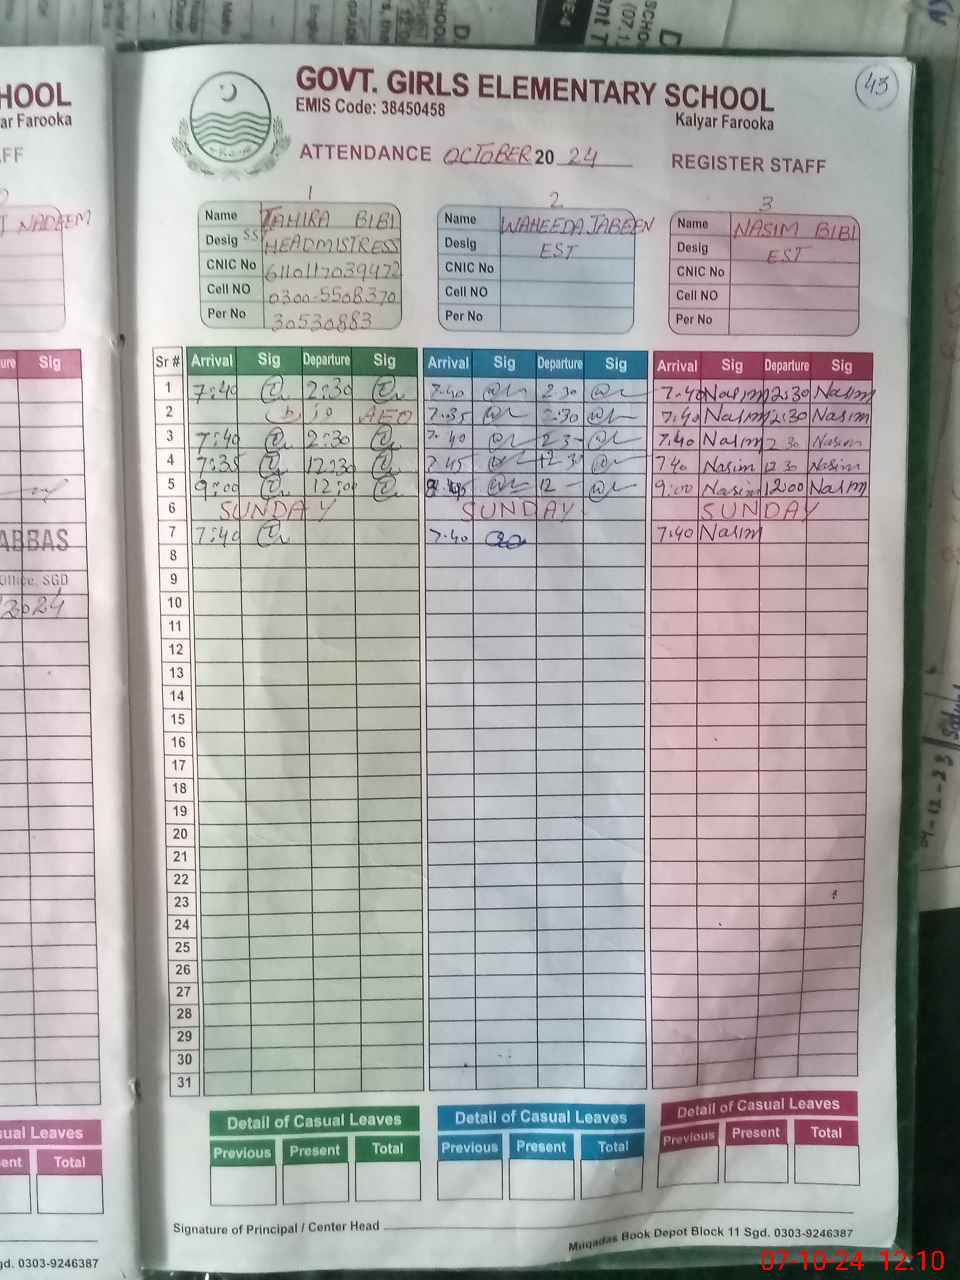 GOVT. GIRLS ELEMENTARY SCHOOL
EMIS Code: 38450458
Kalyar Farooka
43
ATTENDANCE OCTOBER 20 24 REGISTER STAFF
1 2 3
Name TAHIRA BIBI
Desig SS HEADMISTRESS
CNIC No 6110117039472
Cell NO 0300-5508370
Per No 30530883
Name WAHEEDA JABEEN
Desig EST
CNIC No
Cell NO
Per No
Name NASIM BIBI
Desig EST
CNIC No
Cell NO
Per No
Sr # Arrival Sig Departure Sig Arrival Sig Departure Sig Arrival Sig Departure Sig
1 7:40 2:30 7.40 2.30 7.40 Nasim 2:30 Nasim
2 AEO 7.35 2.30 7.40 Nasim 2:30 Nasim
3 7:40 2:30 7.40 2.3- 7.40 Nasim 2 30 Nasim
4 7:35 12:30 7.45 12.30 7.40 Nasim 12 30 Nasim
5 9:00 12:00 12 - 9:00 Nasim 12:00 Nasim
6 SUNDAY SUNDAY SUNDAY
7 7:40 7.40 7:40 Nasim
8
9
10
11
12
13
14
15
16
17
18
19
20
21
22
23
24
25
26
27
28
29
30
31
Detail of Casual Leaves Detail of Casual Leaves Detail of Casual Leaves
Previous Present Total Previous Present Total Previous Present Total
Signature of Principal / Center Head
Muqadas Book Depot Block 11 Sgd. 0303-9246387
HOOL
ar Farooka
FF
NADEEM
ure Sig
ABBAS
Office, SGD
2024
sual Leaves
ent Total
gd. 0303-9246387
04-12-23
07-10-24 12:10